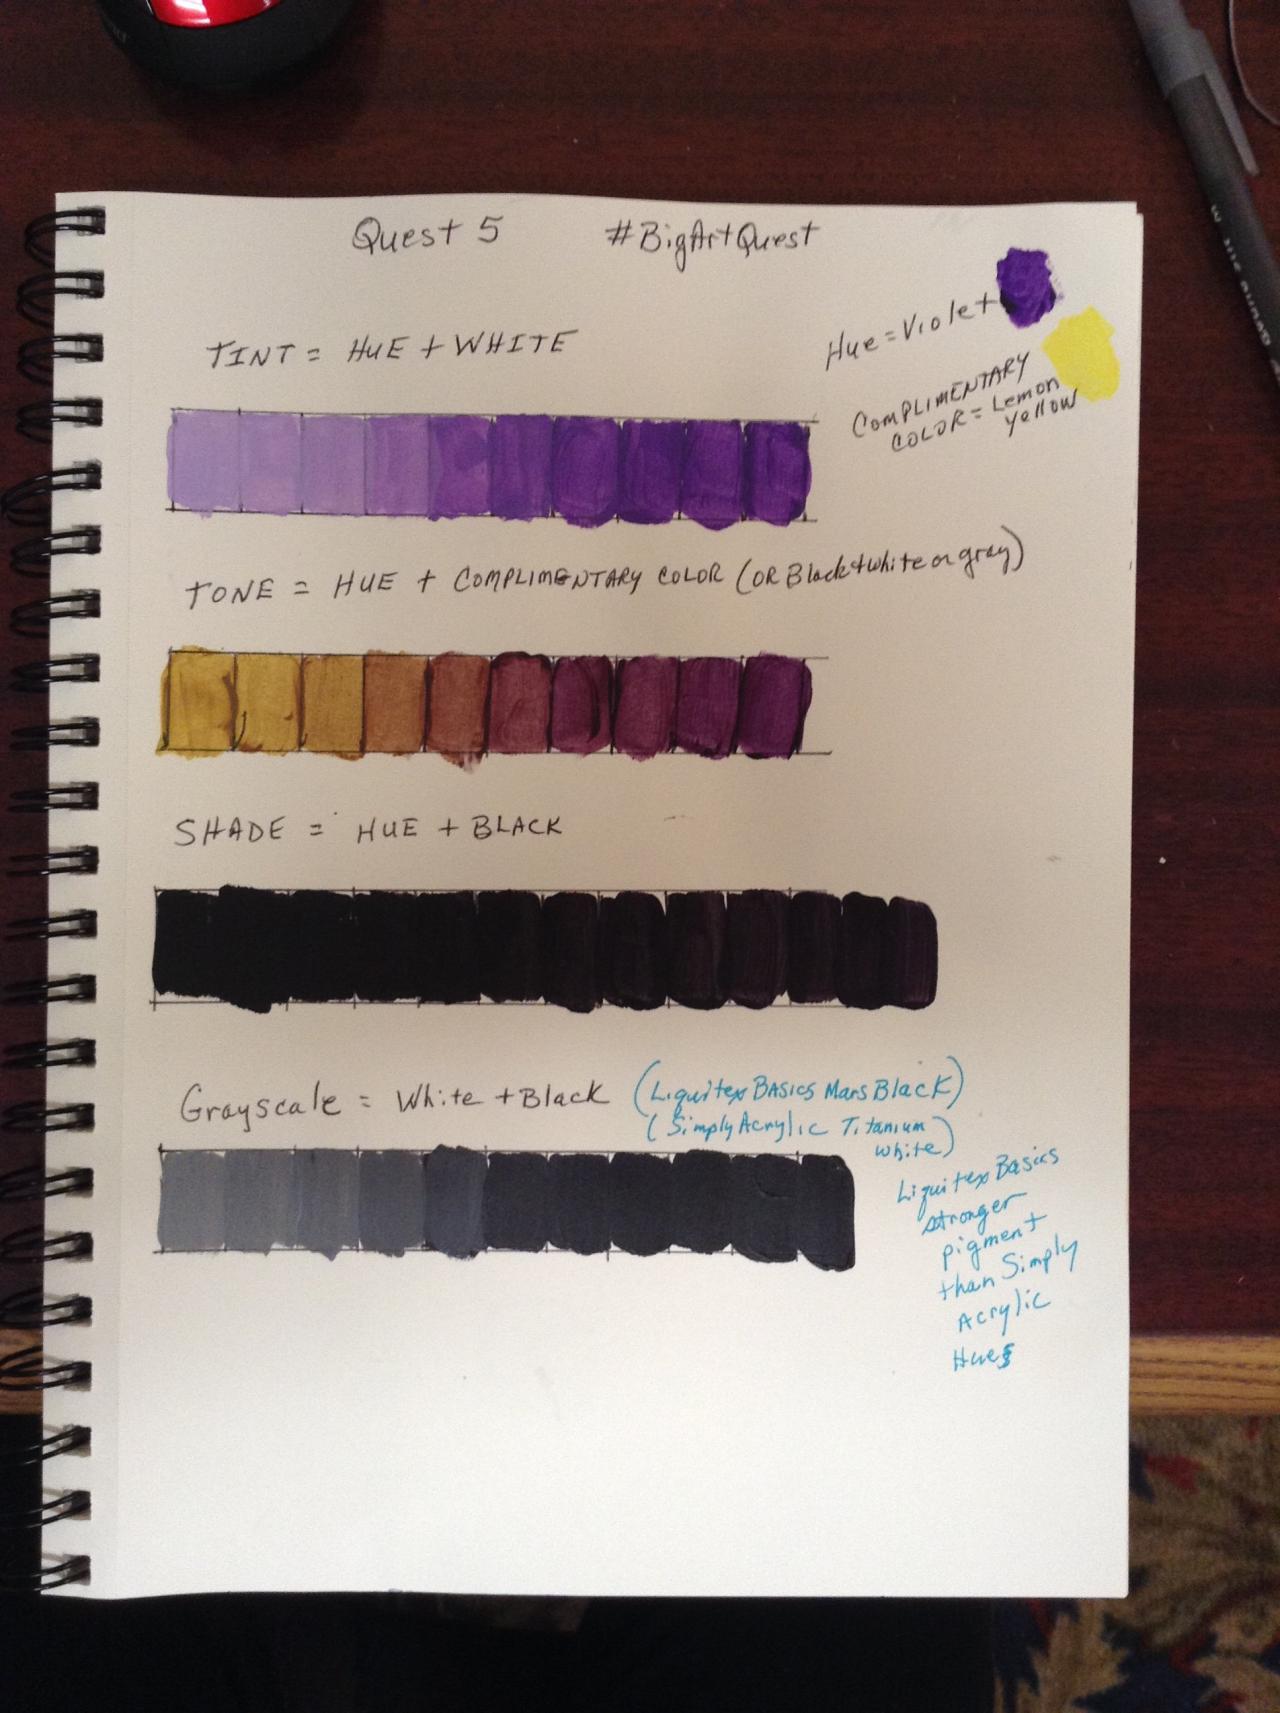 Quest 5 #BigArtQuest
Hue = Violet
COMPLIMENTARY
COLOR = Lemon
Yellow
TINT = HUE + WHITE
TONE = HUE + COMPLIMENTARY COLOR (OR Black+white or gray)
SHADE = HUE + BLACK
Grayscale = White + Black (Liquitex BASICS Mars Black)
(Simply Acrylic Titanium
white)
Liquitex Basics
stronger
pigment
than Simply
Acrylic
Hues